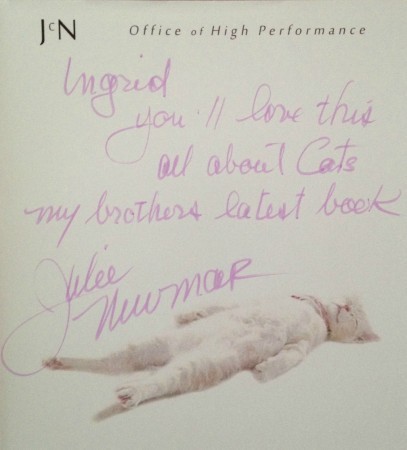 JcN Office of High Performance
Ingrid
you'll love this
all about Cats
my brothers latest book
Julie
Newmar